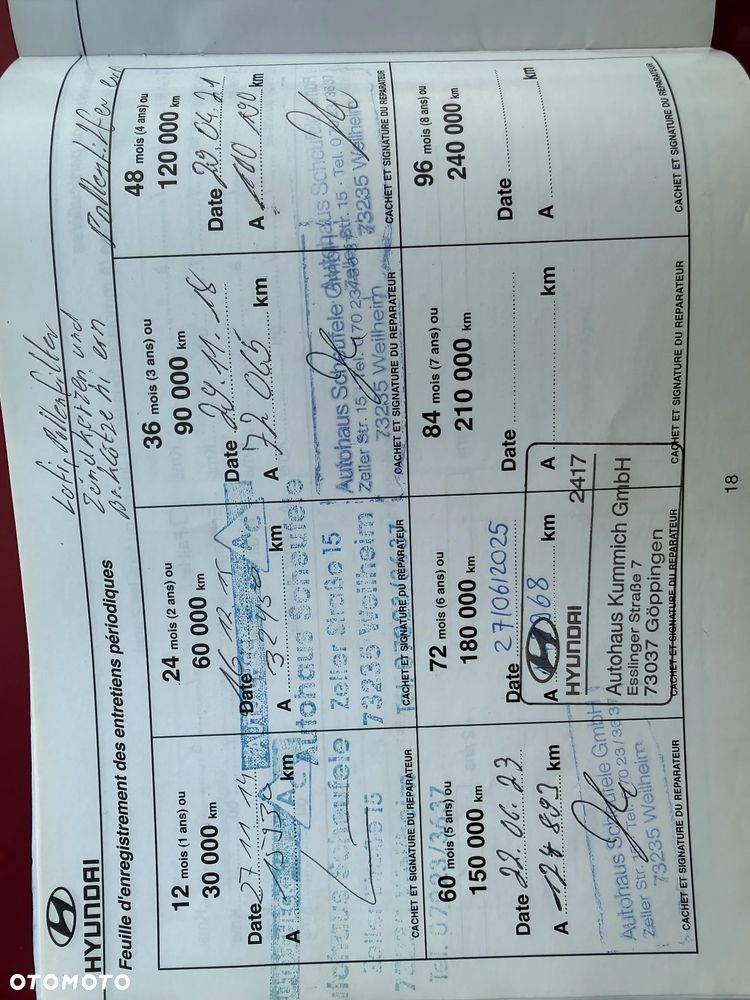 HYUNDAI
Feuille d'enregistrement des entretiens périodiques
Pollenfilter
Zündkerzen und
Pollenfilter
12 mois (1 ans) ou
30 000 km
Date 27 11 14
A km
Autohaus Scheufele
Zeller Straße 15
73235 Weilheim
Tel. 07023/3637
CACHET ET SIGNATURE DU REPARATEUR
24 mois (2 ans) ou
60 000 km
Date
A km
Autohaus Scheufele
Zeller Straße 15
73235 Weilheim
CACHET ET SIGNATURE DU REPARATEUR
36 mois (3 ans) ou
90 000 km
Date 29.11.18
A 72 065 km
Autohaus Scheufele GmbH
Zeller Str. 15
73235 Weilheim
CACHET ET SIGNATURE DU REPARATEUR
48 mois (4 ans) ou
120 000 km
Date 29 04 21
A 110 190 km
Autohaus
Zeller Str. 15 · Tel.
73235 Weilheim
CACHET ET SIGNATURE DU REPARATEUR
60 mois (5 ans) ou
150 000 km
Date 22.06.23
A 124 893 km
Autohaus Scheufele GmbH
Zeller Str. 15 Tel. 07023/3637
73235 Weilheim
CACHET ET SIGNATURE DU REPARATEUR
72 mois (6 ans) ou
180 000 km
Date 27/06/2025
A 068 km
HYUNDAI 2417
Autohaus Kummich GmbH
Esslinger Straße 7
73037 Göppingen
CACHET ET SIGNATURE DU REPARATEUR
84 mois (7 ans) ou
210 000 km
Date
A km
CACHET ET SIGNATURE DU REPARATEUR
96 mois (8 ans) ou
240 000 km
Date
A km
CACHET ET SIGNATURE DU REPARATEUR
18
OTOMOTO